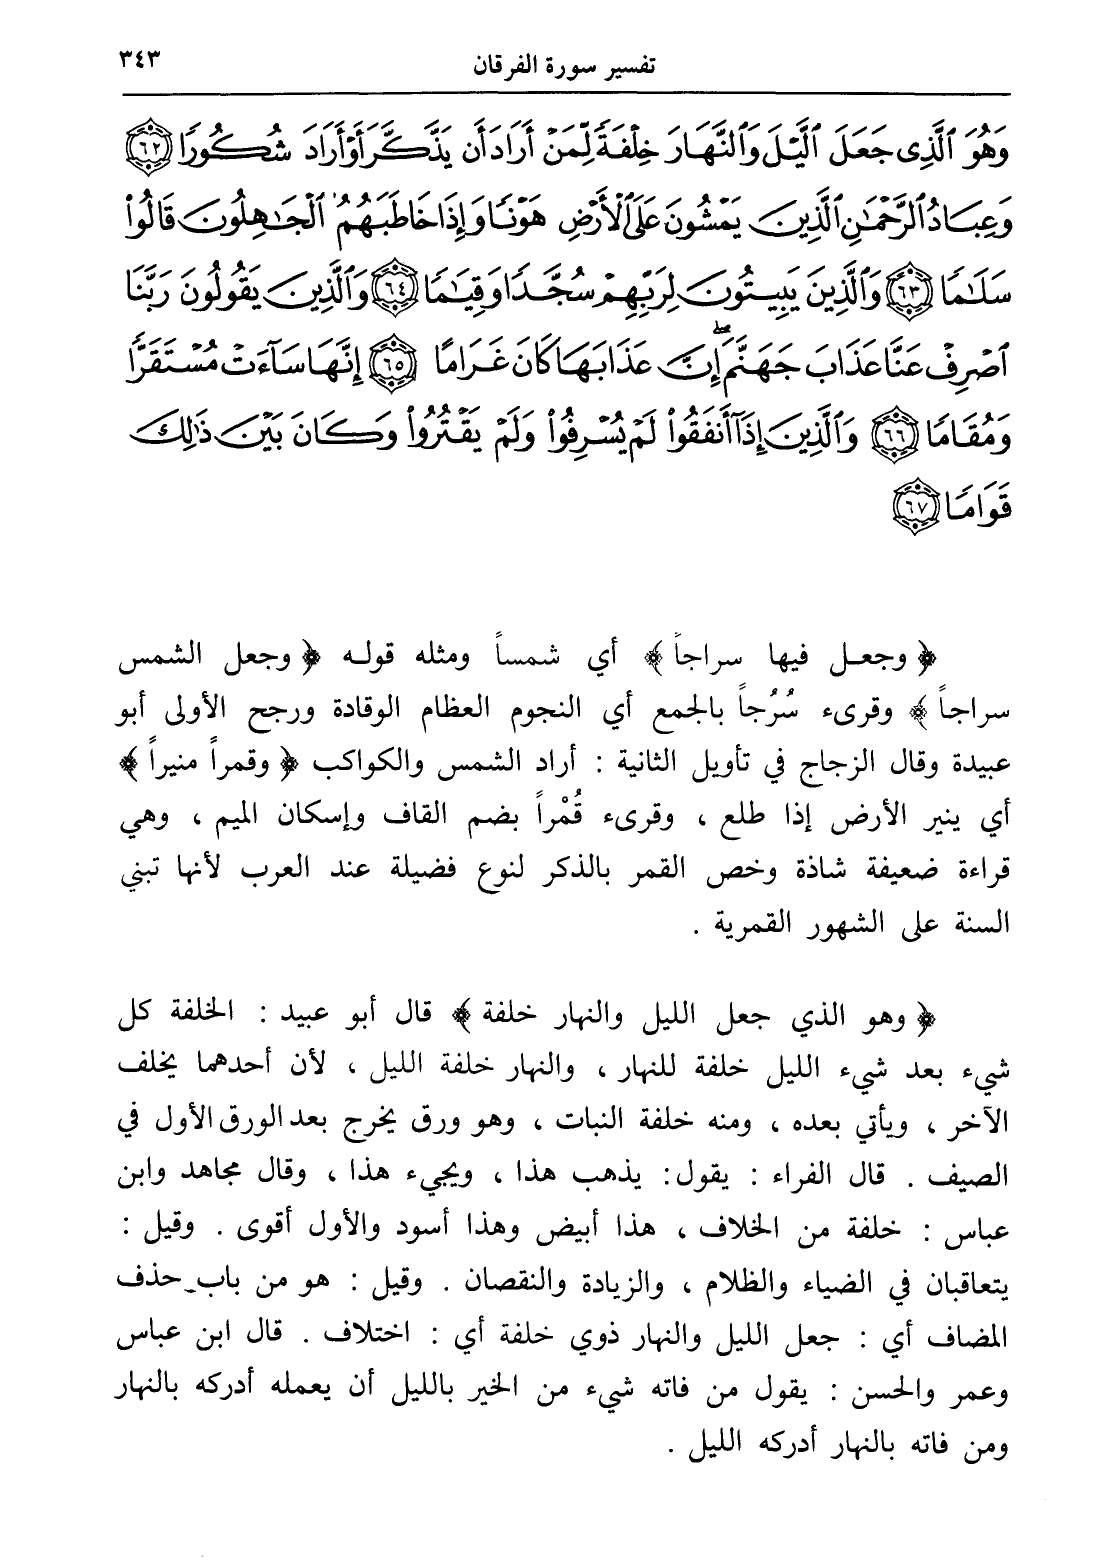 تفسير سورة الفرقان ٣٤٣
وَهُوَ ٱلَّذِى جَعَلَ ٱلَّيْلَ وَٱلنَّهَارَ خِلْفَةً لِّمَنْ أَرَادَ أَن يَذَّكَّرَ أَوْ أَرَادَ شُكُورًا ٦٢
وَعِبَادُ ٱلرَّحْمَٰنِ ٱلَّذِينَ يَمْشُونَ عَلَى ٱلْأَرْضِ هَوْنًا وَإِذَا خَاطَبَهُمُ ٱلْجَٰهِلُونَ قَالُوا۟
سَلَٰمًا ٦٣ وَٱلَّذِينَ يَبِيتُونَ لِرَبِّهِمْ سُجَّدًا وَقِيَٰمًا ٦٤ وَٱلَّذِينَ يَقُولُونَ رَبَّنَا
ٱصْرِفْ عَنَّا عَذَابَ جَهَنَّمَ ۖ إِنَّ عَذَابَهَا كَانَ غَرَامًا ٦٥ إِنَّهَا سَآءَتْ مُسْتَقَرًّا
وَمُقَامًا ٦٦ وَٱلَّذِينَ إِذَآ أَنفَقُوا۟ لَمْ يُسْرِفُوا۟ وَلَمْ يَقْتُرُوا۟ وَكَانَ بَيْنَ ذَٰلِكَ
قَوَامًا ٦٧
﴿ وجعل فيها سراجاً ﴾ أي شمساً ومثله قوله ﴿ وجعل الشمس
سراجاً ﴾ وقرىء سُرُجاً بالجمع أي النجوم العظام الوقادة ورجح الأولى أبو
عبيدة وقال الزجاج في تأويل الثانية : أراد الشمس والكواكب ﴿ وقمراً منيراً ﴾
أي ينير الأرض إذا طلع ، وقرىء قُمْراً بضم القاف وإسكان الميم ، وهي
قراءة ضعيفة شاذة وخص القمر بالذكر لنوع فضيلة عند العرب لأنها تبني
السنة على الشهور القمرية .
﴿ وهو الذي جعل الليل والنهار خلفة ﴾ قال أبو عبيد : الخلفة كل
شيء بعد شيء الليل خلفة للنهار ، والنهار خلفة الليل ، لأن أحدهما يخلف
الآخر ، ويأتي بعده ، ومنه خلفة النبات ، وهو ورق يخرج بعد الورق الأول في
الصيف . قال الفراء : يقول : يذهب هذا ، ويجيء هذا ، وقال مجاهد وابن
عباس : خلفة من الخلاف ، هذا أبيض وهذا أسود والأول أقوى . وقيل :
يتعاقبان في الضياء والظلام ، والزيادة والنقصان . وقيل : هو من باب حذف
المضاف أي : جعل الليل والنهار ذوي خلفة أي : اختلاف . قال ابن عباس
وعمر والحسن : يقول من فاته شيء من الخير بالليل أن يعمله أدركه بالنهار
ومن فاته بالنهار أدركه الليل .